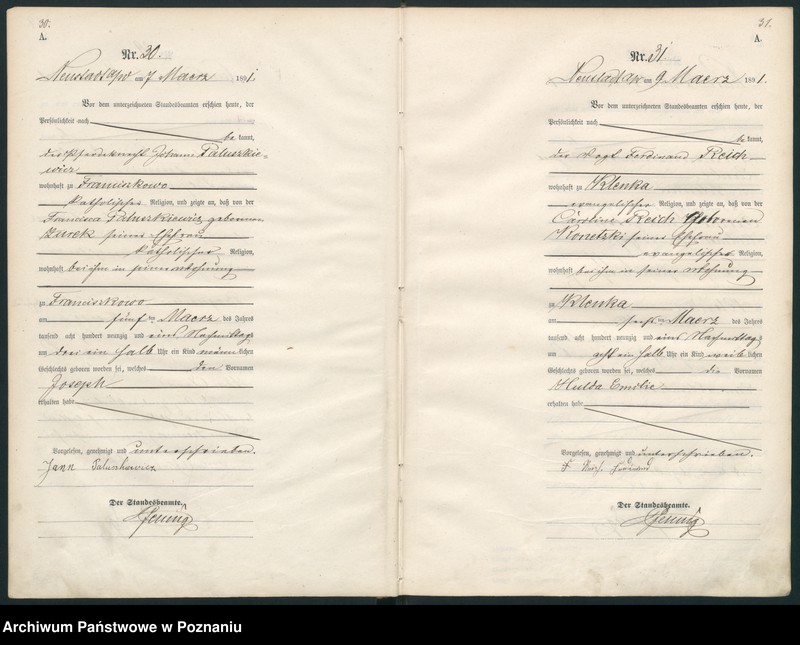 30.
A.
Nr. 30.
Neustadt a/W am 7 Maerz 1891.
Vor dem unterzeichneten Standesbeamten erschien heute, der
Persönlichkeit nach
be kannt,
der Pferdeknecht Johann Paluszkie-
wicz
wohnhaft zu Franciszkowo
katholischer Religion, und zeigte an, daß von der
Francisca Paluszkiewicz geborenen
Zurek seiner Ehefrau
katholischer Religion,
wohnhaft bei ihm in seiner Wohnung
zu Franciszkowo
am fünften Maerz des Jahres
tausend acht hundert neunzig und eins Nachmittags
um drei ein halb Uhr ein Kind männlichen
Geschlechts geboren worden sei, welches den Vornamen
Joseph
erhalten habe
Vorgelesen, genehmigt und unterschrieben.
Jann Paluszkiewicz
Der Standesbeamte.
31.
A.
Nr. 31
Neustadt a/W am 9 Maerz 1891.
Vor dem unterzeichneten Standesbeamten erschien heute, der
Persönlichkeit nach
be kannt,
der Vogt Ferdinand Reich
wohnhaft zu Klenka
evangelischer Religion, und zeigte an, daß von der
Caroline Reich geborenen
Konetzki seiner Ehefrau
evangelischer Religion,
wohnhaft bei ihm in seiner Wohnung
zu Klenka
am sechsten Maerz des Jahres
tausend acht hundert neunzig und eins Nachmittags
um acht ein halb Uhr ein Kind weiblichen
Geschlechts geboren worden sei, welches die Vornamen
Hulda Emilie
erhalten habe
Vorgelesen, genehmigt und unterschrieben.
Der Standesbeamte.
Archiwum Państwowe w Poznaniu